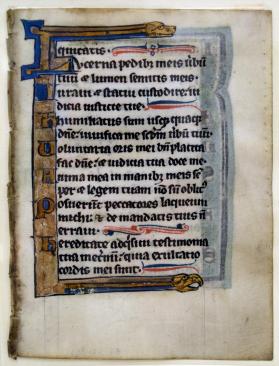 iquitatis.
Lucerna pedib; meis ūbū
tuū et lumen semitis meis.
Iuraui et statui custodire iu
dicia iusticie tue.
Humiliatus sum usq; quaq;
dn̄e: uiuifica me scd̄m ūbū tuū.
Voluntaria oris mei bn̄placita
fac dn̄e: et iudicia tua doce me.
Anima mea in manib; meis sē
per et legem tuam nō sū oblit;
Posuer̄t peccatores laqueum
michi: et de mandatis tuis n̄
erraui.
Hereditate adq̄siui testimonia
tua in et̄nū: quia exultatio
cordis mei sunt.